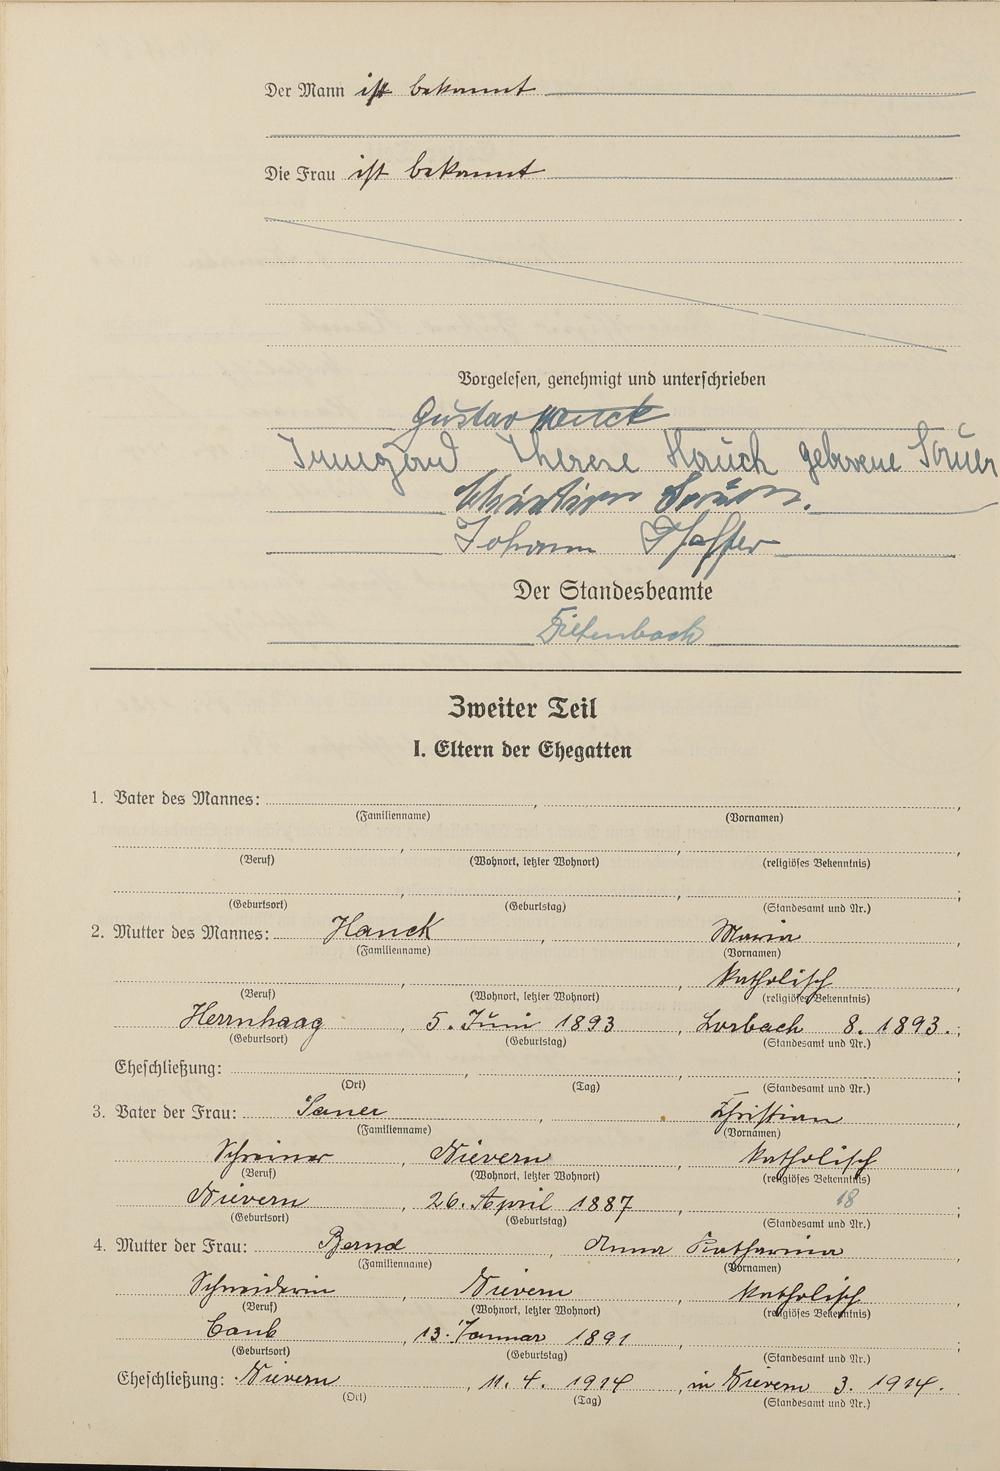 Der Mann ist bekannt
Die Frau ist bekannt
Vorgelesen, genehmigt und unterschrieben
Gustav Hanck
Irmgard Therese Hauck geborene Sauer
Christian Sauer.
Johann Pfaffer
Der Standesbeamte
Zweiter Teil
I. Eltern der Ehegatten
1. Vater des Mannes: , ,
(Familienname) (Vornamen)
, , ,
(Beruf) (Wohnort, letzter Wohnort) (religiöses Bekenntnis)
, , ;
(Geburtsort) (Geburtstag) (Standesamt und Nr.)
2. Mutter des Mannes: Hanck , Maria ,
(Familienname) (Vornamen)
, , katholisch ,
(Beruf) (Wohnort, letzter Wohnort) (religiöses Bekenntnis)
Herrnhaag , 5. Juni 1893 , Lorbach 8. 1893. ;
(Geburtsort) (Geburtstag) (Standesamt und Nr.)
Eheschließung: , , ;
(Ort) (Tag) (Standesamt und Nr.)
3. Vater der Frau: Sauer , Christian ,
(Familienname) (Vornamen)
Schreiner , Nievern , katholisch ,
(Beruf) (Wohnort, letzter Wohnort) (religiöses Bekenntnis)
Nievern , 26. April 1887 , 18 ;
(Geburtsort) (Geburtstag) (Standesamt und Nr.)
4. Mutter der Frau: Bernd , Anna Katharina ,
(Familienname) (Vornamen)
Schneiderin , Nievern , katholisch ,
(Beruf) (Wohnort, letzter Wohnort) (religiöses Bekenntnis)
Caub , 13. Januar 1891 , ;
(Geburtsort) (Geburtstag) (Standesamt und Nr.)
Eheschließung: Nievern , 11. 4. 1914 , in Nievern 3. 1914.
(Ort) (Tag) (Standesamt und Nr.)